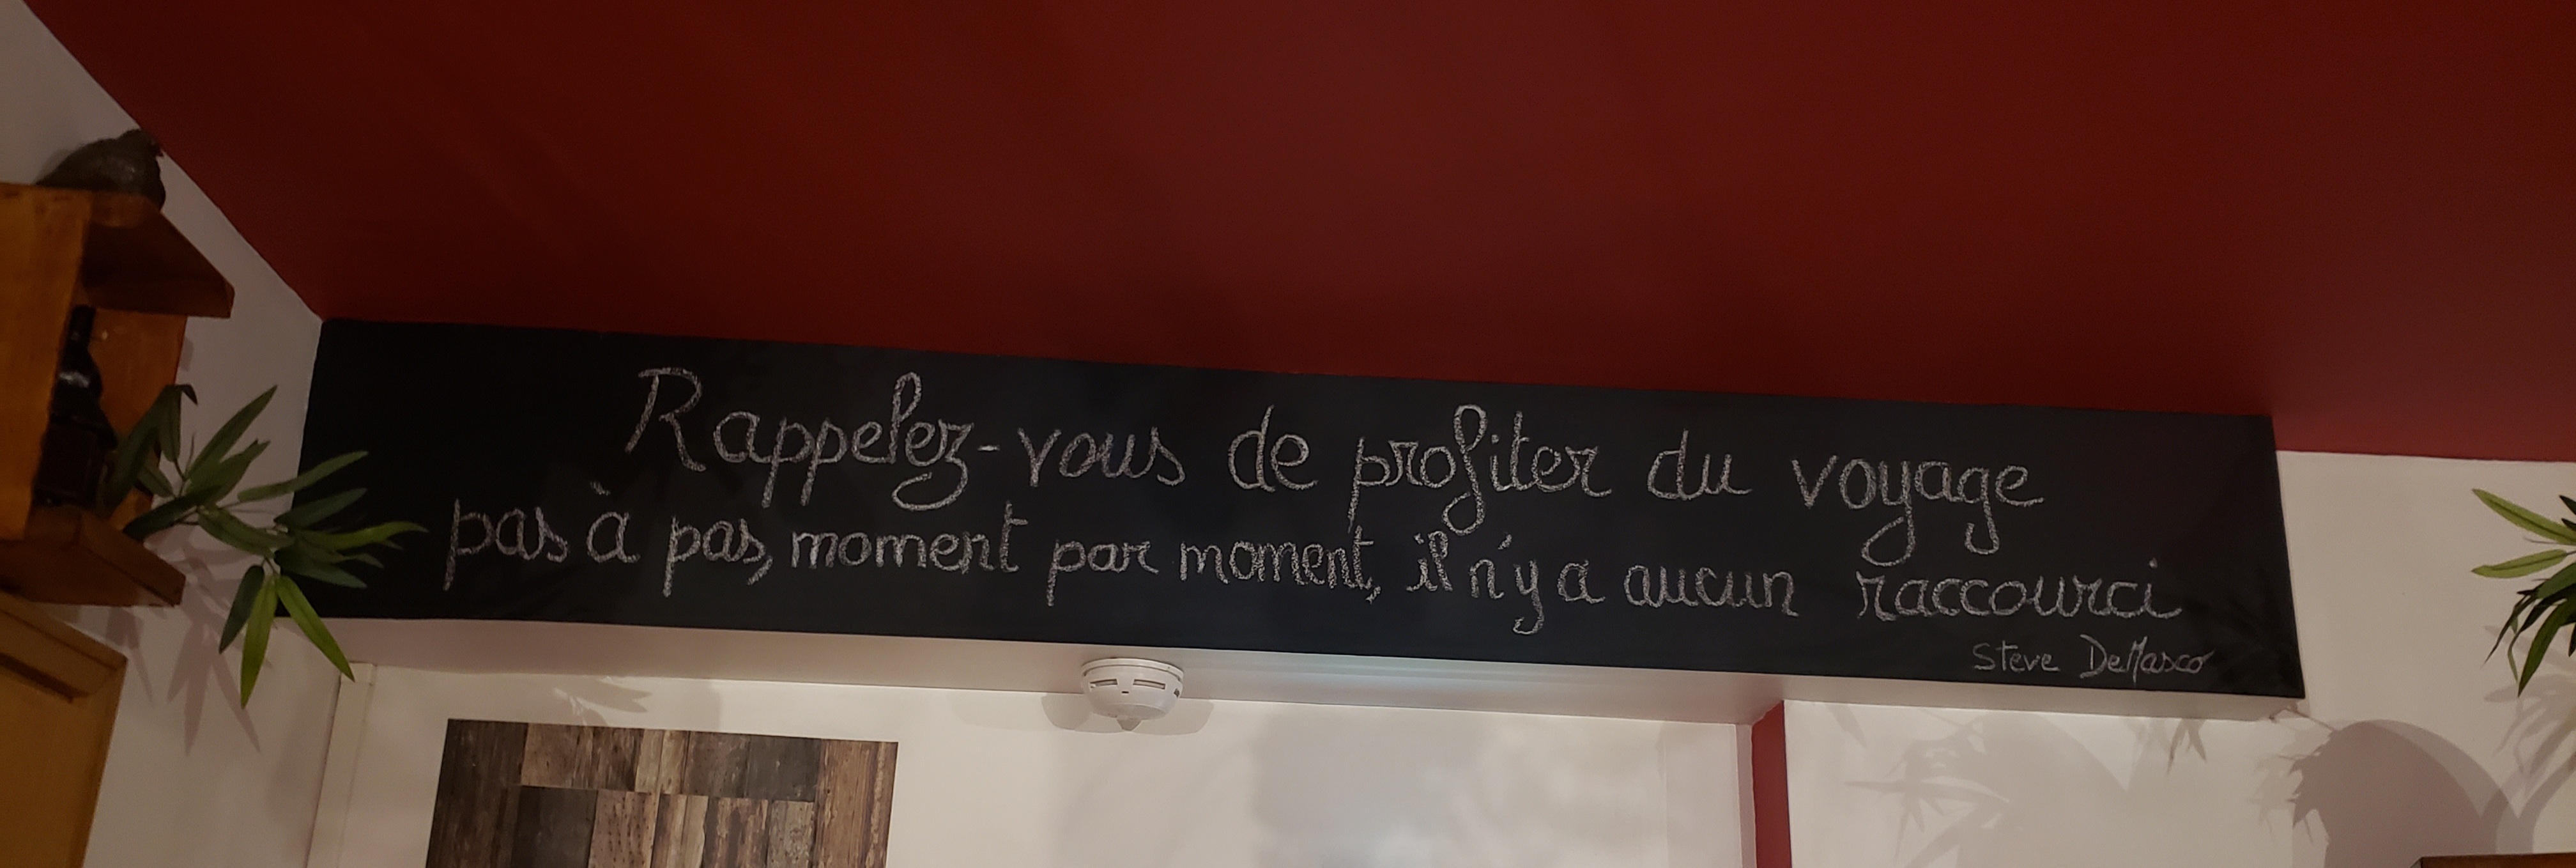 Rappelez-vous de profiter du voyage
pas à pas, moment par moment, il n'y a aucun raccourci
Steve DeMasco